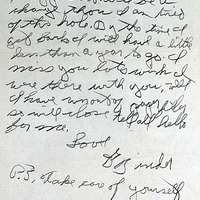 change that. I am tired
of this hole. By the time I
get back I will have a little
less than a year to go. I
miss you lots wish I
were there with you, well
I have run out of
so will close tell all hello
for me.
Love
P.S. take care of yourself